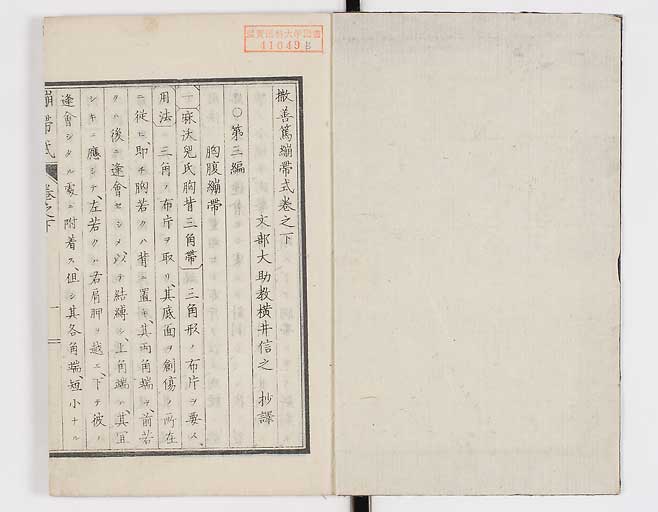 撒善篤繃帶式卷之下
文部大助教橫井信之 抄譯
○第三編
胸腹繃帶
一麻汰兒氏胸背三角帶 三角形ノ布片ヲ要ス、
用法 三角ノ布片ヲ取リ、其底面ヲ創傷ノ所在
ニ從ヒ、即チ胸若クハ背ニ置キ、其両角端ヲ、前若
クハ後ニ逢會セシメ、以テ結縛シ、上角端ハ、其宜
シキニ應シテ、左若クハ右肩胛ヲ越エ、下テ彼ノ
逢會シタル處ニ附着ス、但シ其各角端、短小ナル
繃帶式 卷之下 一
41049